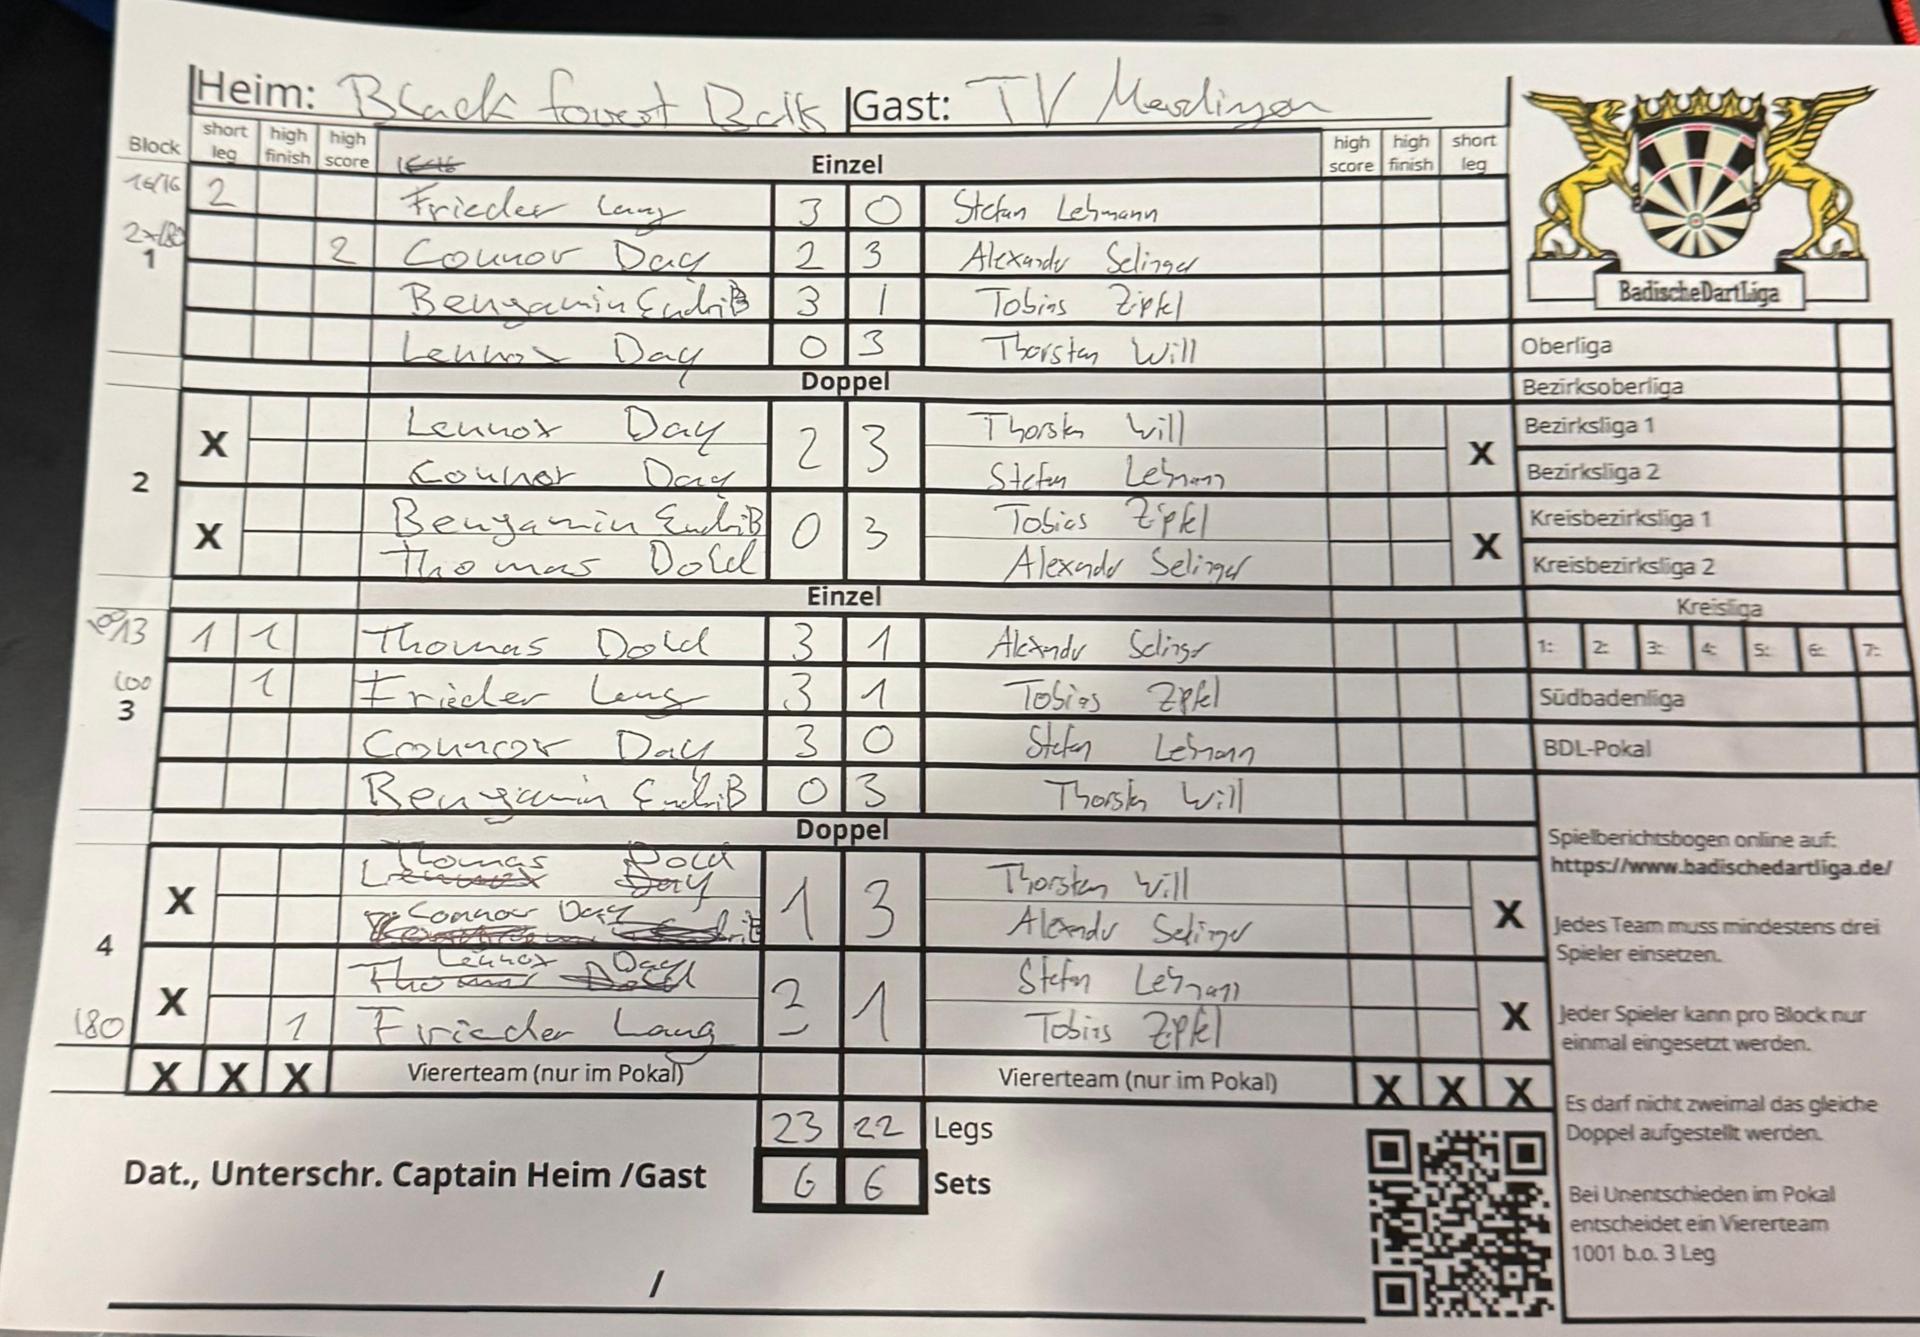 Heim: Black forest Gast: TV Merdingen
Block short leg high finish high score Einzel high score high finish short leg
16/16 2 Frieder Lang 3 0 Stefan Lehmann
2x180 2 Connor Day 2 3 Alexander Selinger
1
Bengamin EndriB 3 1 Tobias Zipfel
Lennox Day 0 3 Thorsten Will
Doppel
X Lennox Day 2 3 Thorsten Will X
Connor Day Stefan Lehmann
2
X Bengamin EndriB 0 3 Tobias Zipfel X
Thomas Dold Alexander Selinger
Einzel
1 1 Thomas Dold 3 1 Alexander Selinger
100 1 Frieder Lang 3 1 Tobias Zipfel
3
Connor Day 3 0 Stefan Lehmann
Bengamin EndriB 0 3 Thorsten Will
Doppel
Thomas Dold
X Lennox Day 1 3 Thorsten Will X
Connor Day Alexander Selinger
4
Lennox Day
X Thomas Dold 3 1 Stefan Lehmann X
180 1 Frieder Lang Tobias Zipfel
X X X Viererteam (nur im Pokal) Viererteam (nur im Pokal) X X X
23 22 Legs
Dat., Unterschr. Captain Heim /Gast 6 6 Sets
/
BadischeDartLiga
Oberliga
Bezirksoberliga
Bezirksliga 1
Bezirksliga 2
Kreisbezirksliga 1
Kreisbezirksliga 2
Kreisliga
1: 2: 3: 4: 5: 6: 7:
Südbadenliga
BDL-Pokal
Spielberichtsbogen online auf:
https://www.badischedartliga.de/
Jedes Team muss mindestens drei
Spieler einsetzen.
Jeder Spieler kann pro Block nur
einmal eingesetzt werden.
Es darf nicht zweimal das gleiche
Doppel aufgestellt werden.
Bei Unentschieden im Pokal
entscheidet ein Viererteam
1001 b.o. 3 Leg